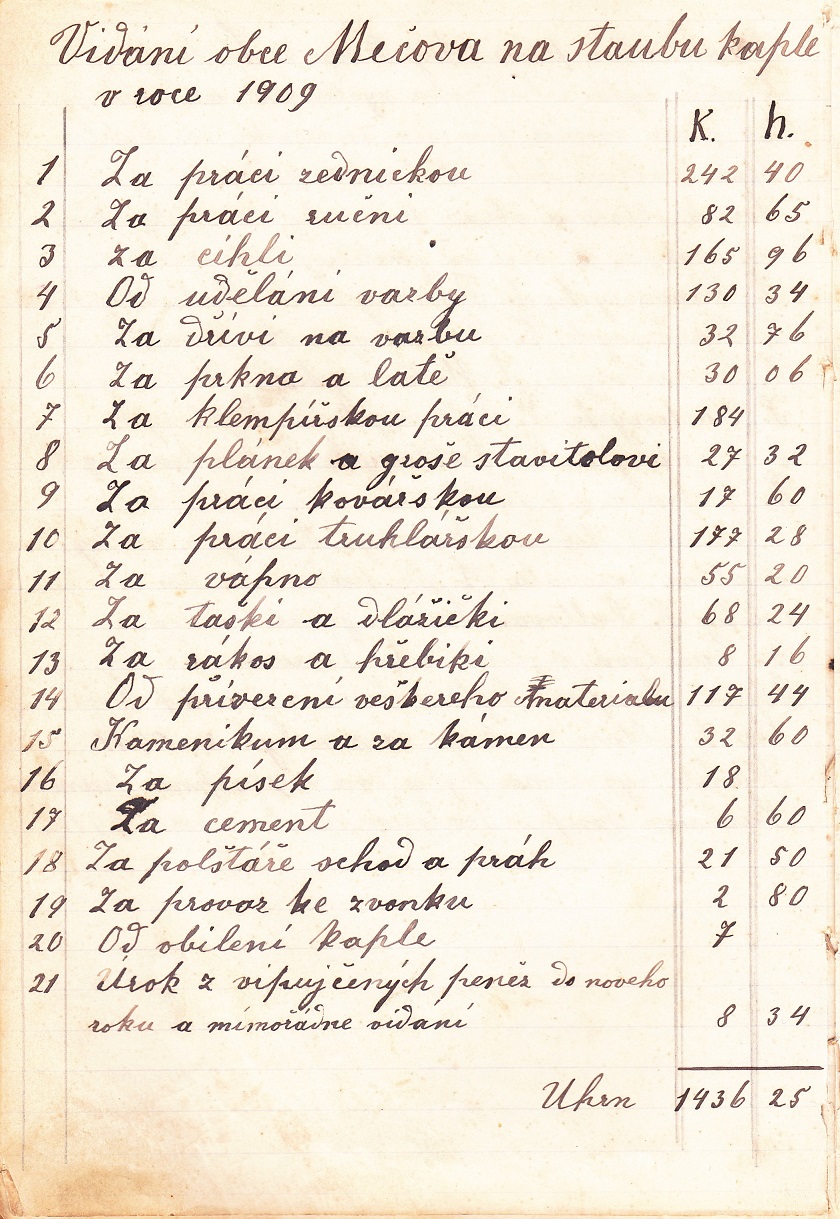 Vidání obce Mečova na staubu kaple
v roce 1909
K. h.
1 Za práci zednickou 242 40
2 Za práci ruční 82 65
3 za cihli 165 96
4 Od udělání vazby 130 34
5 Za dříví na vazbu 32 76
6 Za prkna a latě 30 06
7 Za klempířskou práci 184
8 Za plánek a groše stavitolovi 27 32
9 Za práci kovářskou 17 60
10 Za práci truhlářskou 177 28
11 Za vápno 55 20
12 Za taški a dlážički 68 24
13 Za rákos a hřebiki 8 16
14 Od přivezení veškereho materialu 117 44
15 Kamenikum a za kámen 32 60
16 Za písek 18
17 Za cement 6 60
18 Za polštáře schod a práh 21 50
19 Za provaz ke zvonku 2 80
20 Od obilení kaple 7
21 Úrok z vipujčených peněz do noveho
roku a mimořádne vidání 8 34
Uhrn 1436 25